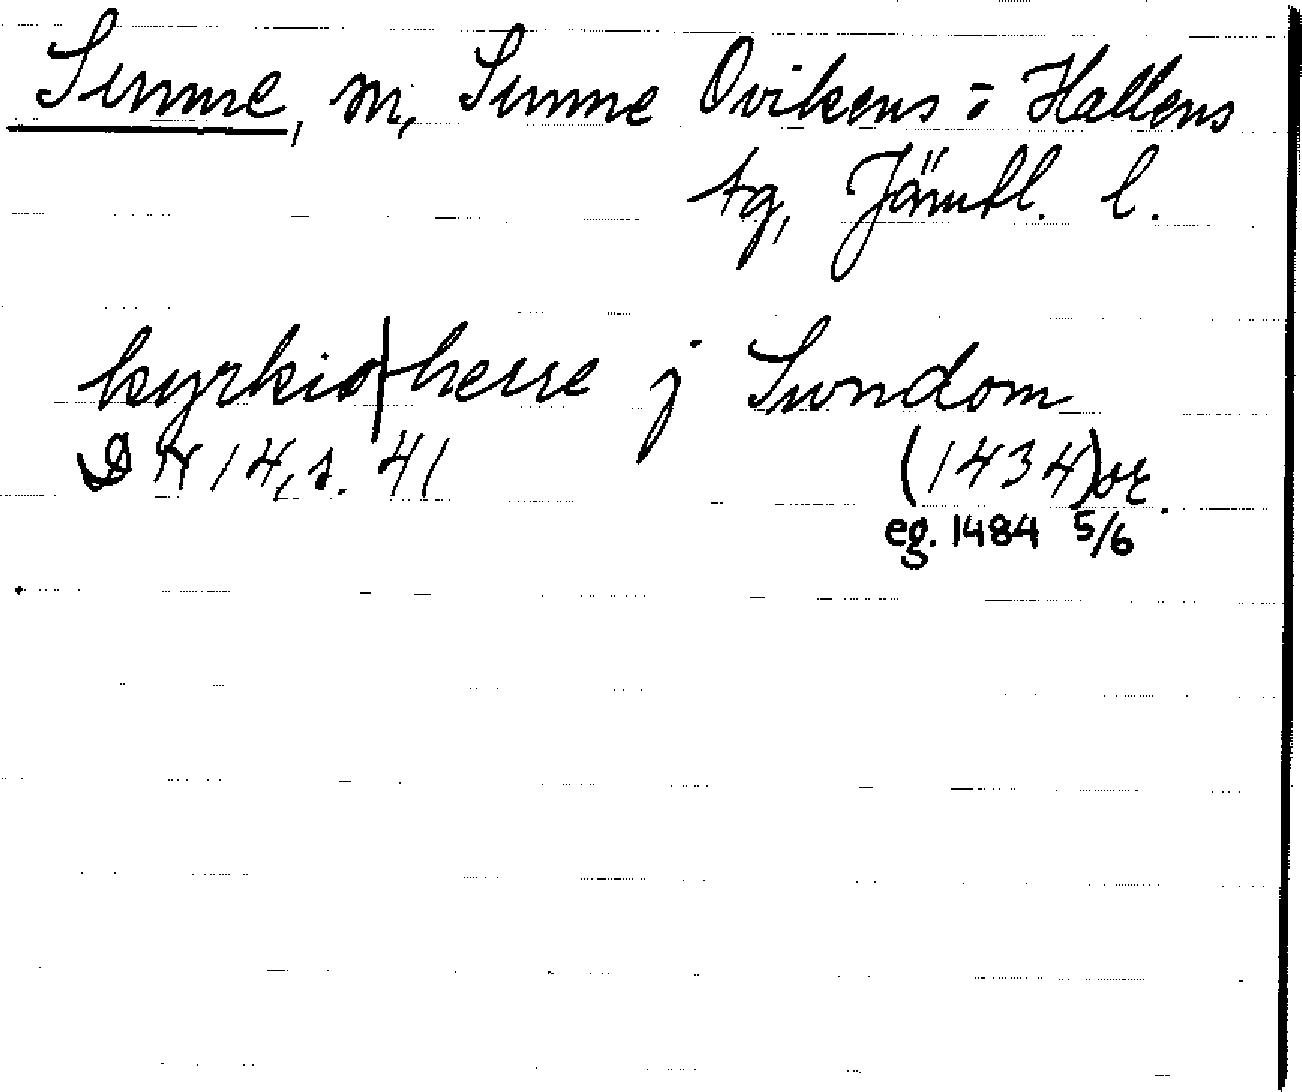 Sunne, sn, Sunne Ovikens o Hallens
tg, Jämtl. l.
kyrkio|herre j Swndom
DN 14, s. 41 (1434) or.
eg. 1484 5/6